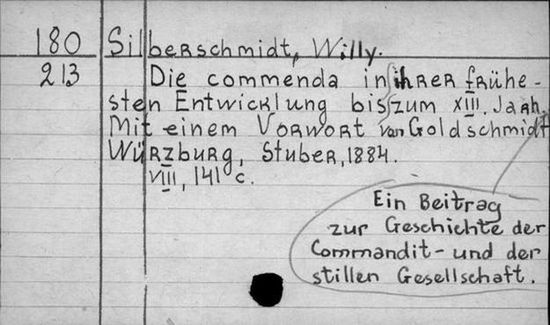 180 Silberschmidt, Willy.
213 Die commenda in ihrer frühe-
sten Entwicklung bis zum XIII. Jarh.
Mit einem Vorwort von Goldschmidt
Würzburg, Stuber, 1884.
VIII, 141 c.
Ein Beitrag
zur Geschichte der
Commandit- und der
stillen Gesellschaft.